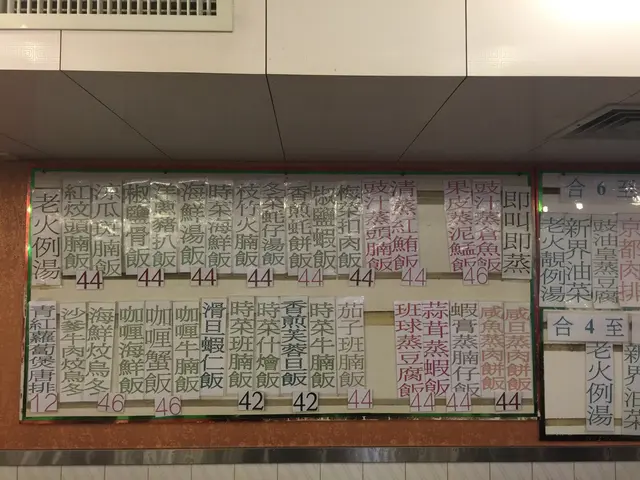 老火例湯
紅炆頭腩飯
涼瓜肉腩飯
44
椒鹽骨飯
豬扒飯
44
海鮮湯飯
時菜海鮮飯
44
枝竹火腩飯
44
冬菜蚝仔湯飯
香煎蚝餅飯
44
椒鹽蝦飯
梅菜扣肉飯
44
豉汁蒸頭腩飯
清蒸紅鮋飯
44
果皮蒸泥鯭飯
豉汁蒸倉魚飯
46
即叫即蒸
青紅蘿蔔煲唐排
12
沙爹牛肉炆烏冬
海鮮炆烏冬
46
咖喱海鮮飯
咖喱蟹飯
46
咖喱牛腩飯
滑旦蝦仁飯
時菜班腩飯
42
時菜什燴飯
香煎芙蓉旦飯
42
時菜牛腩飯
茄子班腩飯
44
班球蒸豆腐飯
44
蒜茸蒸蝦飯
44
蝦膏蒸腩仔飯
咸魚蒸肉餅飯
咸旦蒸肉餅飯
44
合6至
老火靚例湯
新界油菜
豉油皇蒸豆腐
京都肉排
合4至
老火例湯
新界油菜